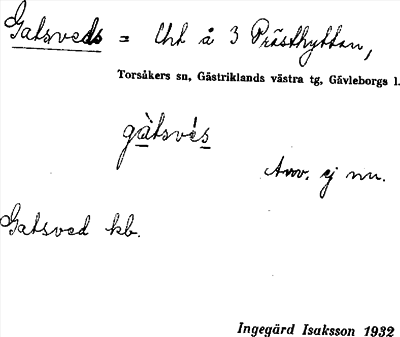 Gatsveds = Urt å 3 Prästhyttan,
Torsåkers sn, Gästriklands västra tg, Gävleborgs l.
gàtsvés
Anv. ej nu.
Gatsved kb.
Ingegärd Isaksson 1932